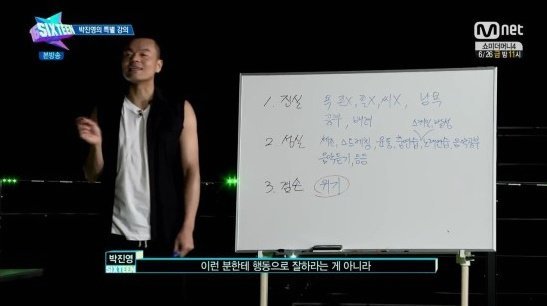 SIXTEEN
박진영의 특별 강의
본방송
M net
쇼미더머니4
6/26 금 밤 11시
1. 진실 욕 존X, 존X, 씨X, 남욕
공부, 배려
스케일, 발성
2. 성실 체조, 스트레칭, 운동, 춤연습, 노래연습, 음악공부
음악듣기, 등등
3. 겸손 위기
박진영
SIXTEEN
이런 분한테 행동으로 잘하라는 게 아니라